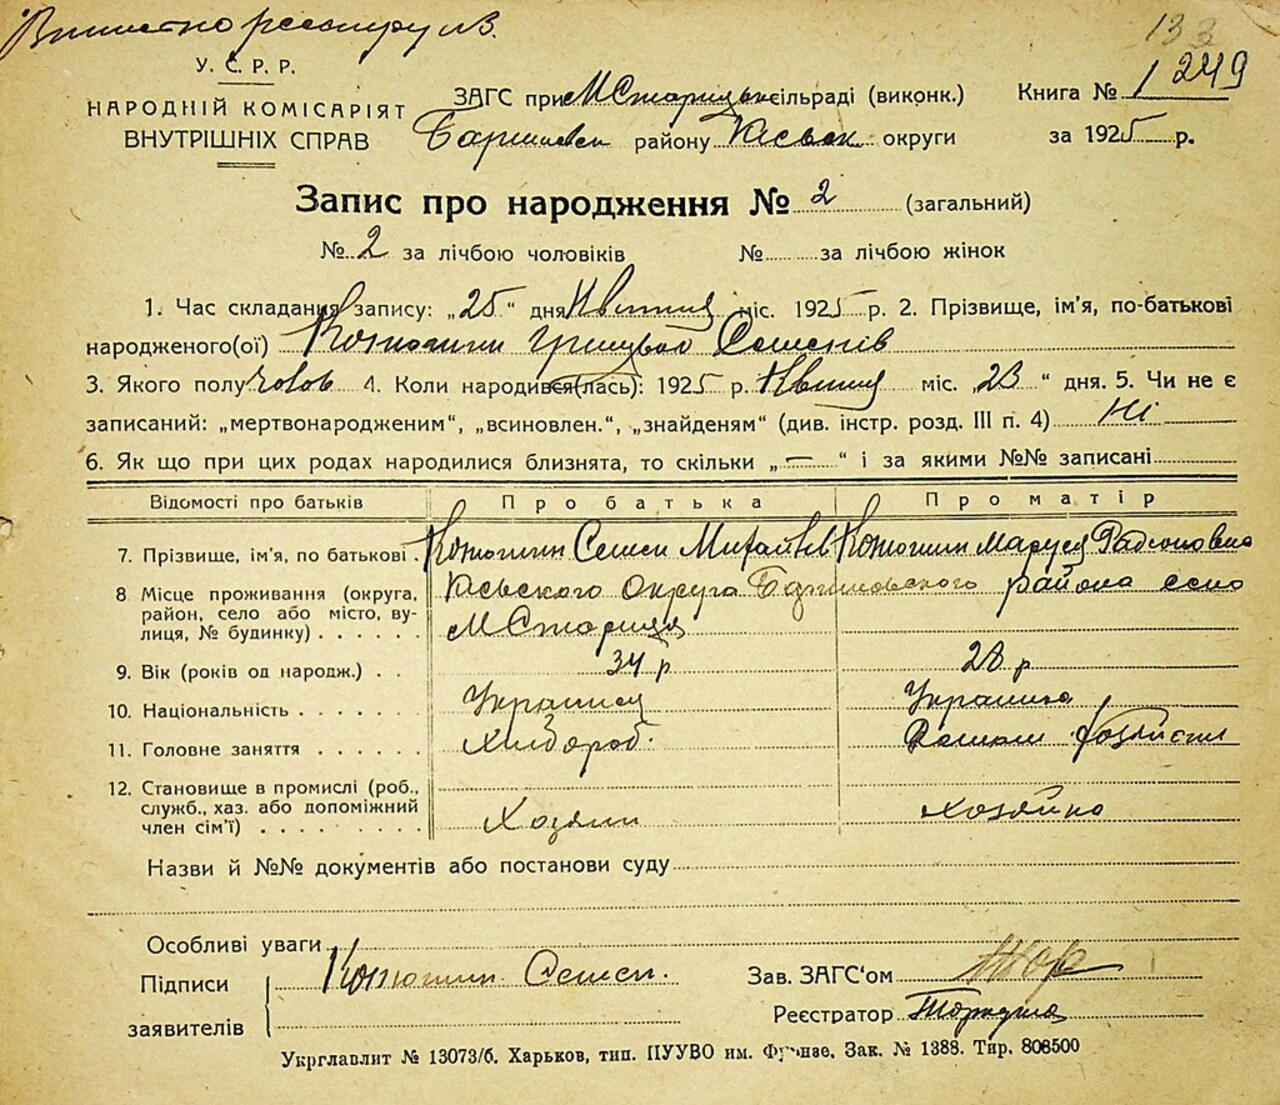 133
У. С. Р. Р.
НАРОДНІЙ КОМІСАРІЯТ
ВНУТРІШНІХ СПРАВ
ЗАГС при МСтарицьк сільраді (виконк.)
району Київськ округи
Книга № 1 249
за 1925 р.
Запис про народження № 2 (загальний)
№ 2 за лічбою чоловіків № за лічбою жінок
1. Час складання запису: „25“ дня Квітня міс. 1925 р. 2. Прізвище, ім'я, по-батькові
народженого(ої)
3. Якого полу чолов 4. Коли народився(лась): 1925 р. Квітня міс. „23“ дня. 5. Чи не є
записаний: „мертвонародженим“, „всиновлен.“, „знайденям“ (див. інстр. розд. III п. 4) Ні
6. Як що при цих родах народилися близнята, то скільки „—“ і за якими №№ записані
Відомості про батьків Про батька Про матір
7. Прізвище, ім'я, по батькові
8 Місце проживання (округа, район, село або місто, вулиця, № будинку) Округа района село
МСтариця
9. Вік (років од народж.) 34 р 28 р
10. Національність Украинец Украинка
11. Головне заняття Хлібороб.
12. Становище в промислі (роб., служб., хаз. або допоміжний член сім'ї) Хозяин хозяйка
Назви й №№ документів або постанови суду
Особливі уваги
Підписи
заявителів
Зав. ЗАГС'ом
Реєстратор
Укрглавлит № 13073/б. Харьков, тип. ПУУВО им. Фрунзе. Зак. № 1388. Тир. 808500